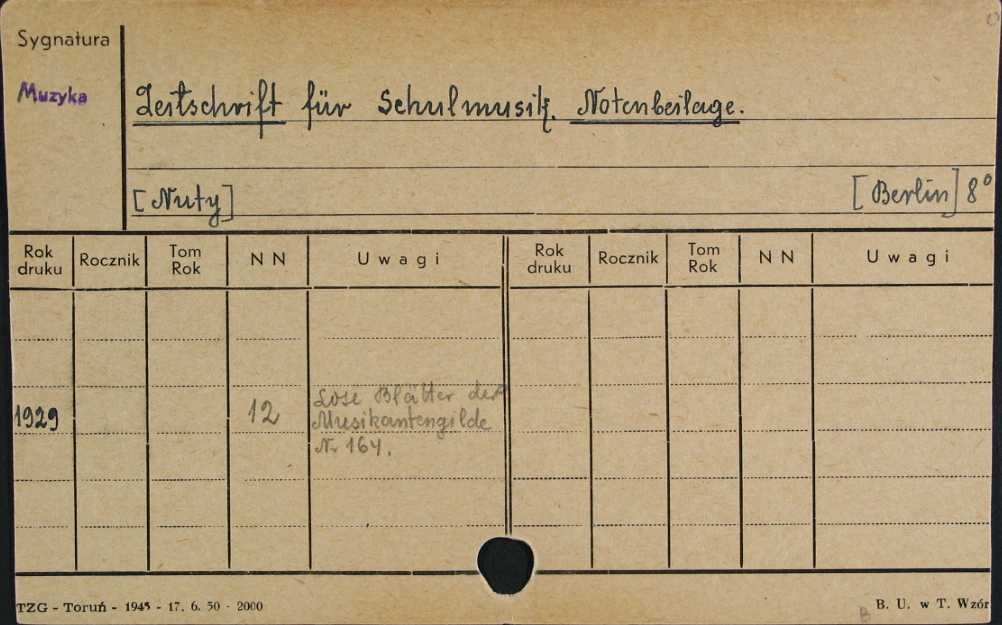 Sygnatura
Muzyka
Zeitschrift für Schulmusik. Notenbeilage.
[Nuty] [Berlin] 8°
Rok druku Rocznik Tom Rok NN Uwagi Rok druku Rocznik Tom Rok NN Uwagi
1929 12 Lose Blätter der
Musikantengilde
Nr 164.
TZG - Toruń - 1945 - 17. 6. 50 - 2000 B. U. w T. Wzór
B